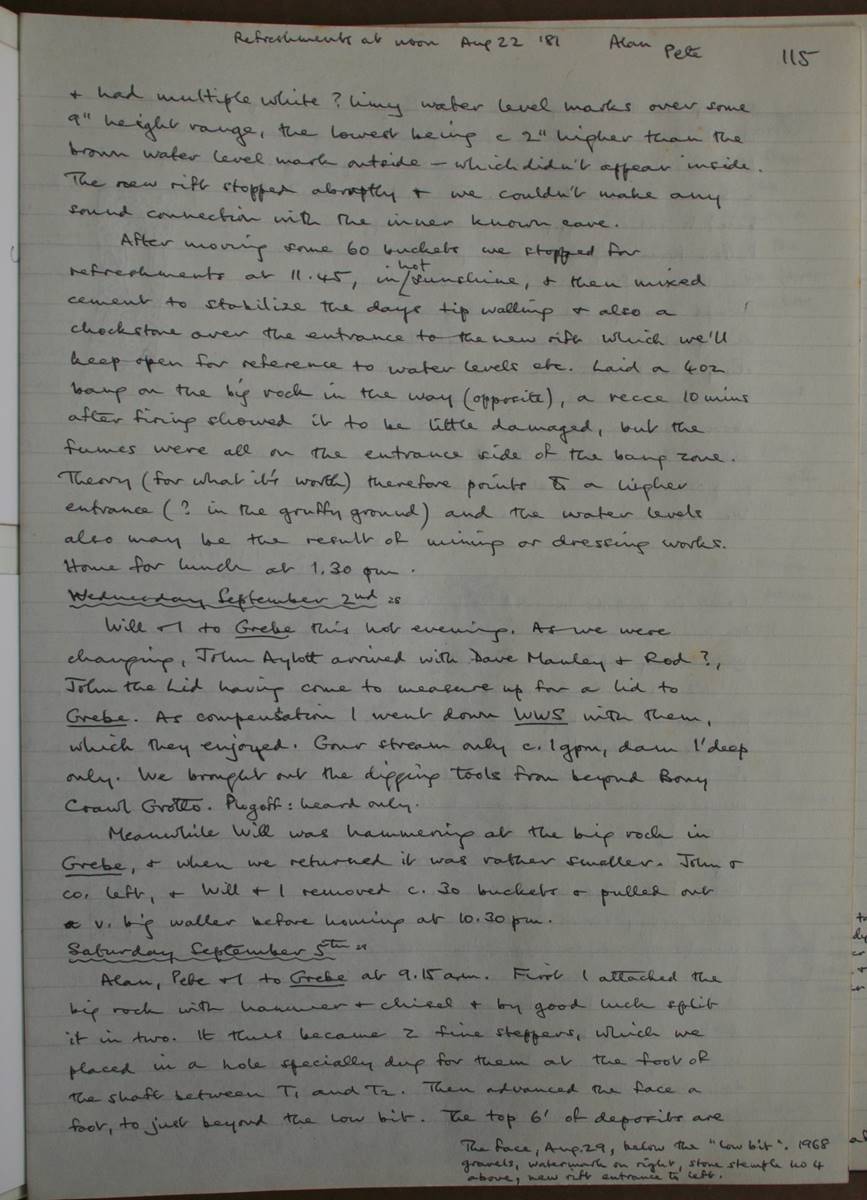 Refreshments at noon Aug 22 '81 Alan Pete
115
+ had multiple white ? limy water level marks over some
9" height range, the lowest being c 2" higher than the
brown water level mark outside – which didn't appear inside.
The new rift stopped abruptly + we couldn't make any
sound connection with the inner known cave.
After moving some 60 buckets we stopped for
refreshments at 11.45, in hot sunshine, + then mixed
cement to stabilize the days tip walling + also a
chockstone over the entrance to the new rift which we'll
keep open for reference to water levels etc. Laid a 4oz
bang on the big rock in the way (opposite), a recce 10 mins
after firing showed it to be little damaged, but the
fumes were all on the entrance side of the bang zone.
Theory (for what it's worth) therefore points to a higher
entrance (? in the gruffy ground) and the water levels
also may be the result of mining or dressing works.
Home for lunch at 1.30 pm.
Wednesday September 2nd
Will + I to Grebe this hot evening. As we were
changing, John Aylott arrived with Dave Manley + Rod ?,
John the Lid having come to measure up for a lid to
Grebe. As compensation I went down WWS with them,
which they enjoyed. Gour stream only c. 1 gpm, dam 1' deep
only. We brought out the digging tools from beyond Bony
Crawl Grotto. Plogoff: heard only.
Meanwhile Will was hammering at the big rock in
Grebe, + when we returned it was rather smaller. John +
co. left, + Will + I removed c. 30 buckets + pulled out
a v. big waller before homing at 10.30 pm.
Saturday September 5th
Alan, Pete + I to Grebe at 9.15 am. First I attached the
big rock with hammer + chisel + by good luck split
it in two. It thus became 2 fine steppers, which we
placed in a hole specially dug for them at the foot of
the shaft between T1 and T2. Then advanced the face a
foot, to just beyond the low bit. The top 6' of deposits are
The face, Aug. 29, below the "low bit". 1968
gravels, watermark on right, stone stemple no 4
above, new rift entrance to left.